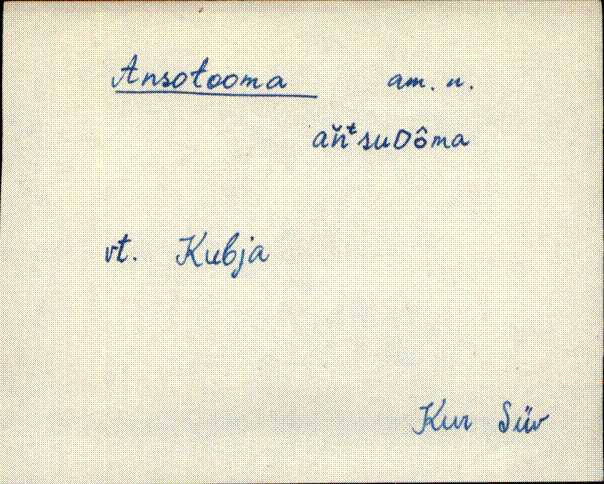 Ansotooma am. n.
aň́ᵗsuDôma
vt. Kubja
Kur Süv